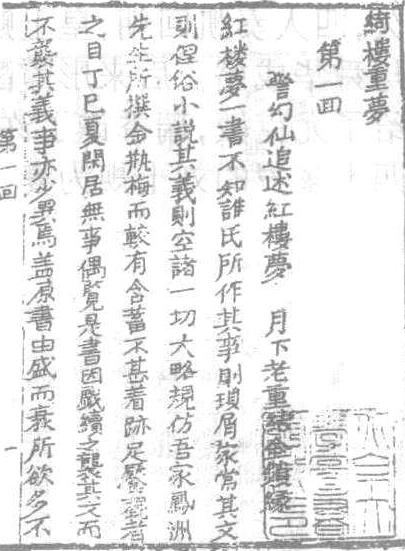 綺樓重夢
第一回
警幻仙追述紅樓夢 月下老重結金鎖緣
紅樓夢一書不知誰氏所作其事則瑣屑家常其文
則俚俗小説其義則空諸一切大略規仿吾家鳳洲
先生所撰金瓶梅而較有含蓄不甚着跡足饜讀者
之目丁巳夏閒居無事偶覽是書因戲續之襲其文而
不襲其義事亦少異焉蓋原書由盛而衰所欲多不
第一回
一